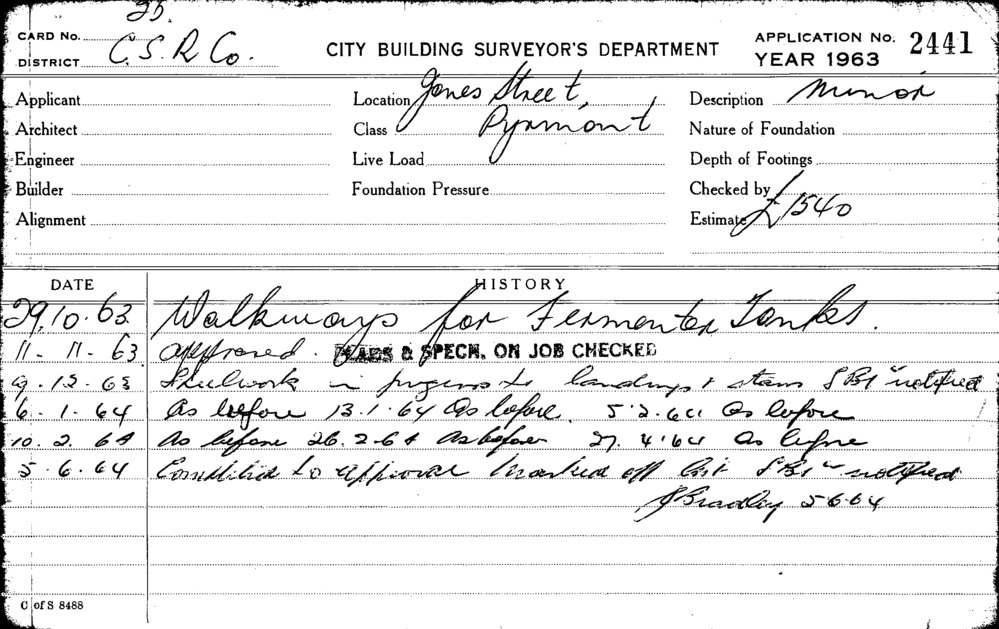 CARD No. 25.
DISTRICT C.S.R Co.
CITY BUILDING SURVEYOR'S DEPARTMENT
APPLICATION No. 2441
YEAR 1963
Applicant
Location Jones Street,
Description Minor
Architect
Class Pyrmont
Nature of Foundation
Engineer
Live Load
Depth of Footings
Builder
Foundation Pressure
Checked by
Alignment
Estimate £1540
DATE HISTORY
29.10.63. Walkways for Fermenter Tanks.
11-11-63 approved. PLANS & SPECN. ON JOB CHECKED
9.12.63 Steelwork in progress to landings & stairs notified
6.1.64 As before 13.1.64 As before. 5.2.64 As before
10.2.64 As before 26.2.64 As before 27.4.64 As before
5.6.64 Completed to approval marked off list notified
Bradley 5.6.64
C of S 8488